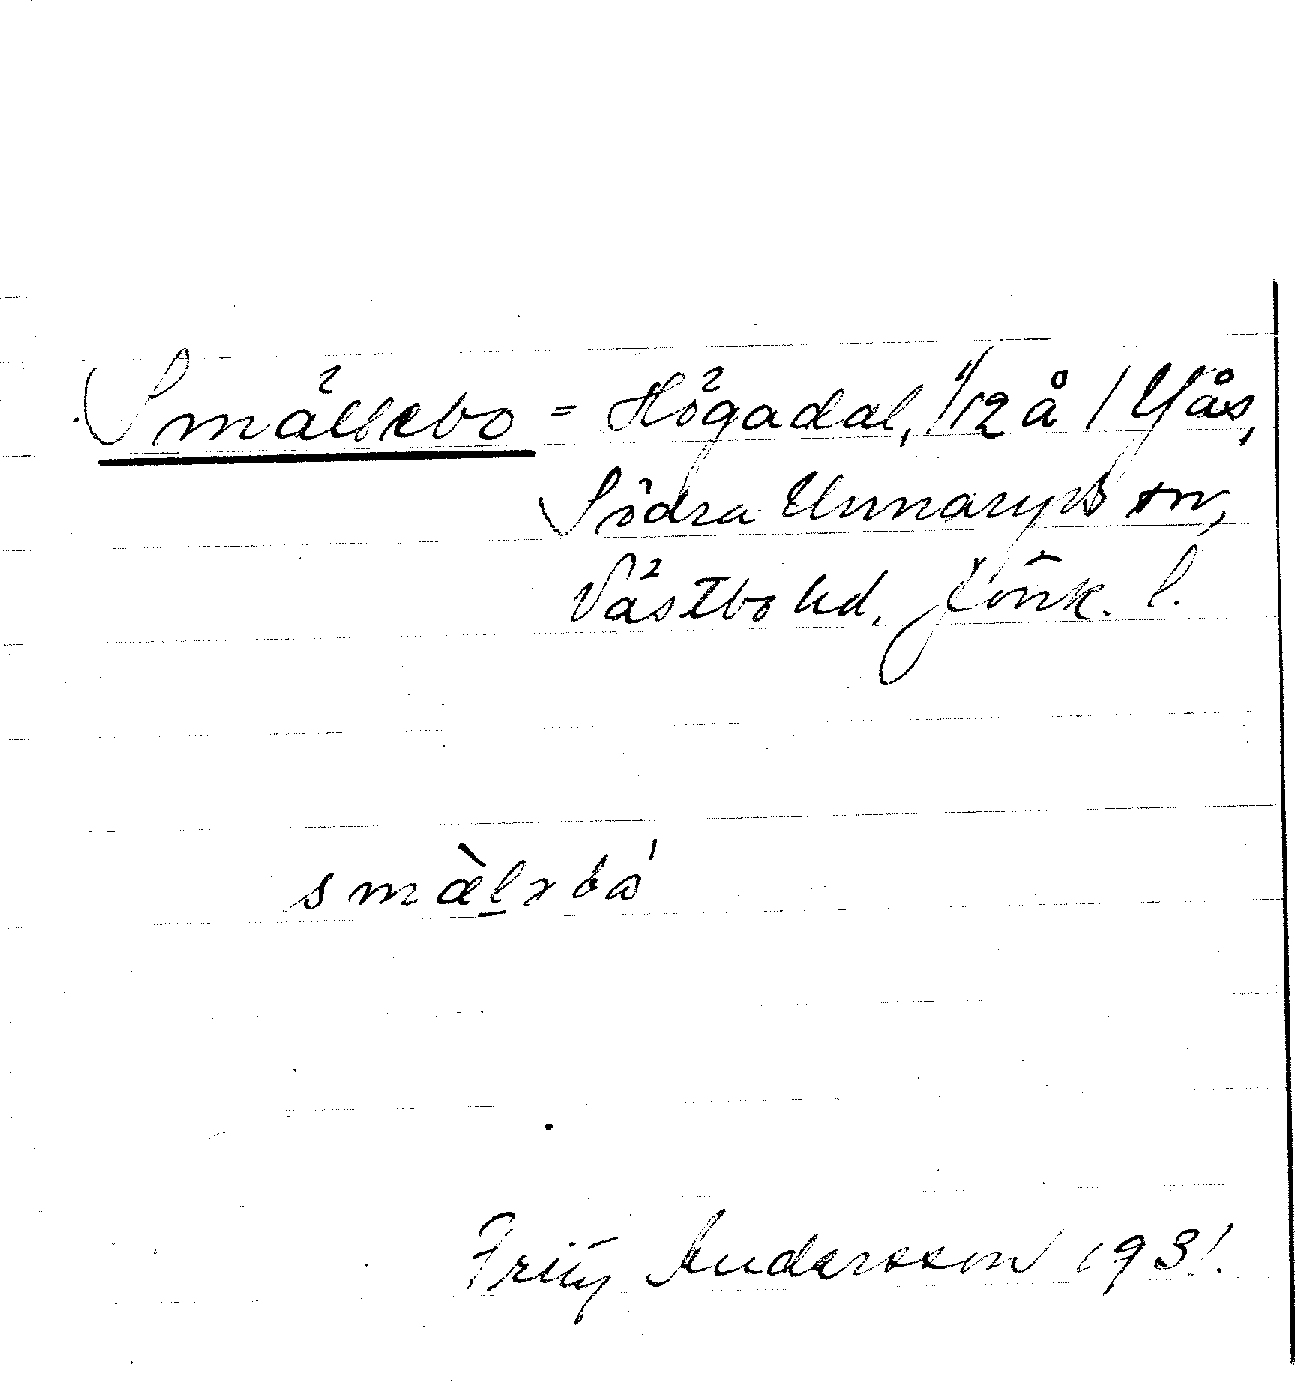 Smällebo = Högadal, 1/12 å 1 Yås,
Södra Unnaryds sn,
Västbo hd, Jönk. l.
smæ̀lxbo̊'
Fritz Andersson 1931.